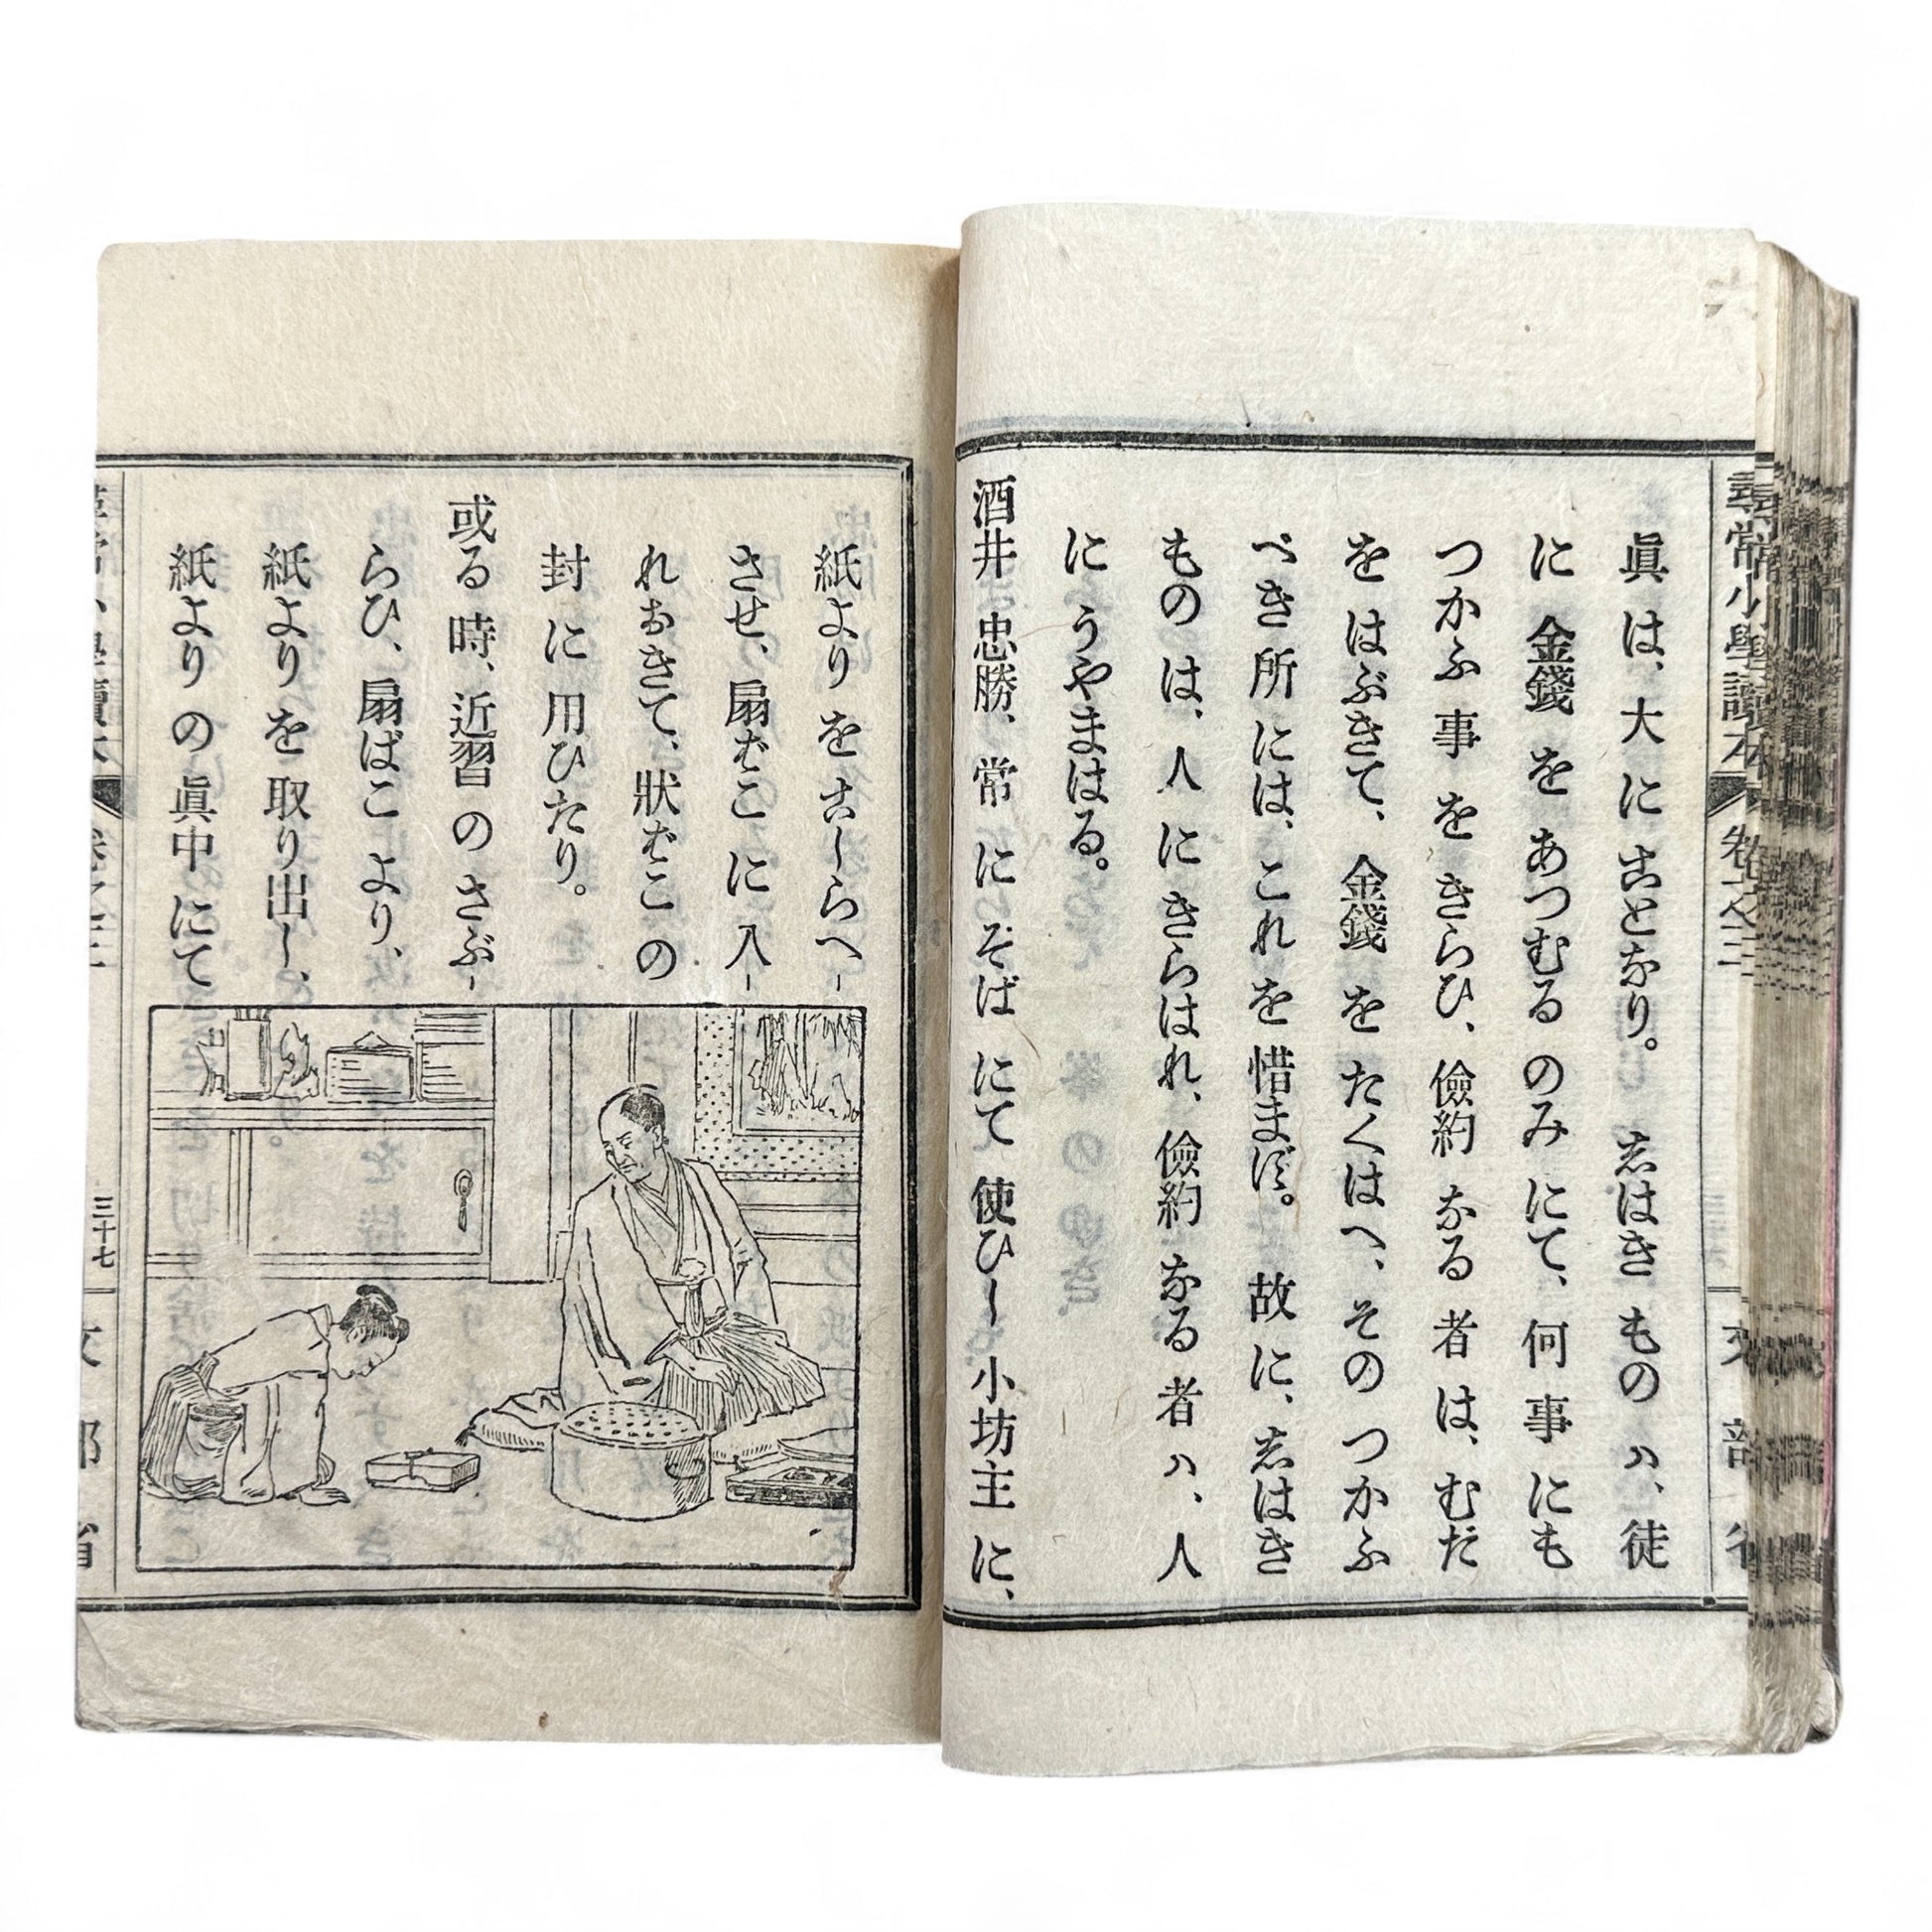 尋常小學讀本 卷之三
眞は、大にことなり。 志はきものハ、徒
に金錢をあつむるのみにて、何事にも
つかふ事をきらひ、儉約なる者は、むだ
をはぶきて、金錢をたくはへ、そのつかふ
べき所には、これを惜まず。故に、志はき
ものは、人にきらはれ、儉約なる者ハ、人
にうやまはる。
酒井忠勝、常にそばにて使ひし小坊主に、
紙よりをこしらへ
させ、扇ばこに入
れおきて、狀ばこの
封に用ひたり。
或る時、近習のさぶ
らひ、扇ばこより、
紙よりを取り出し、
紙よりの眞中にて
三十七
文部省